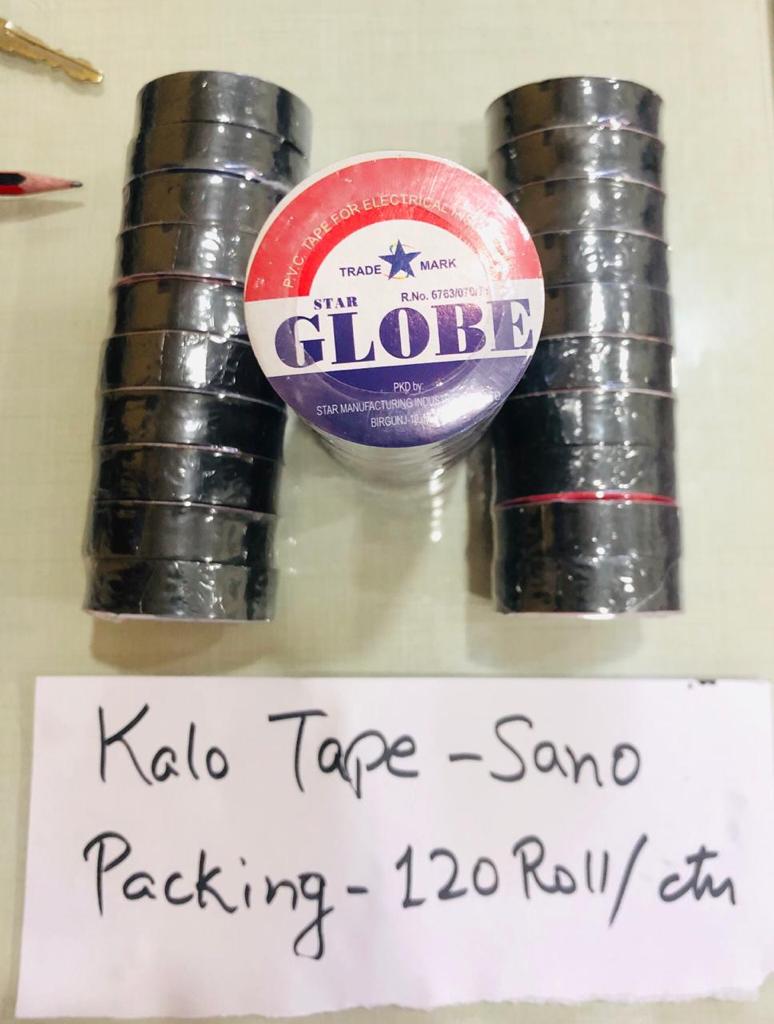 P.V.C. TAPE FOR ELECTRICAL
TRADE MARK
R.No. 6763/070/71
STAR
GLOBE
PKD by:
STAR MANUFACTURING
BIRGUNJ-
Kalo Tape - Sano
Packing - 120 Roll/ctn